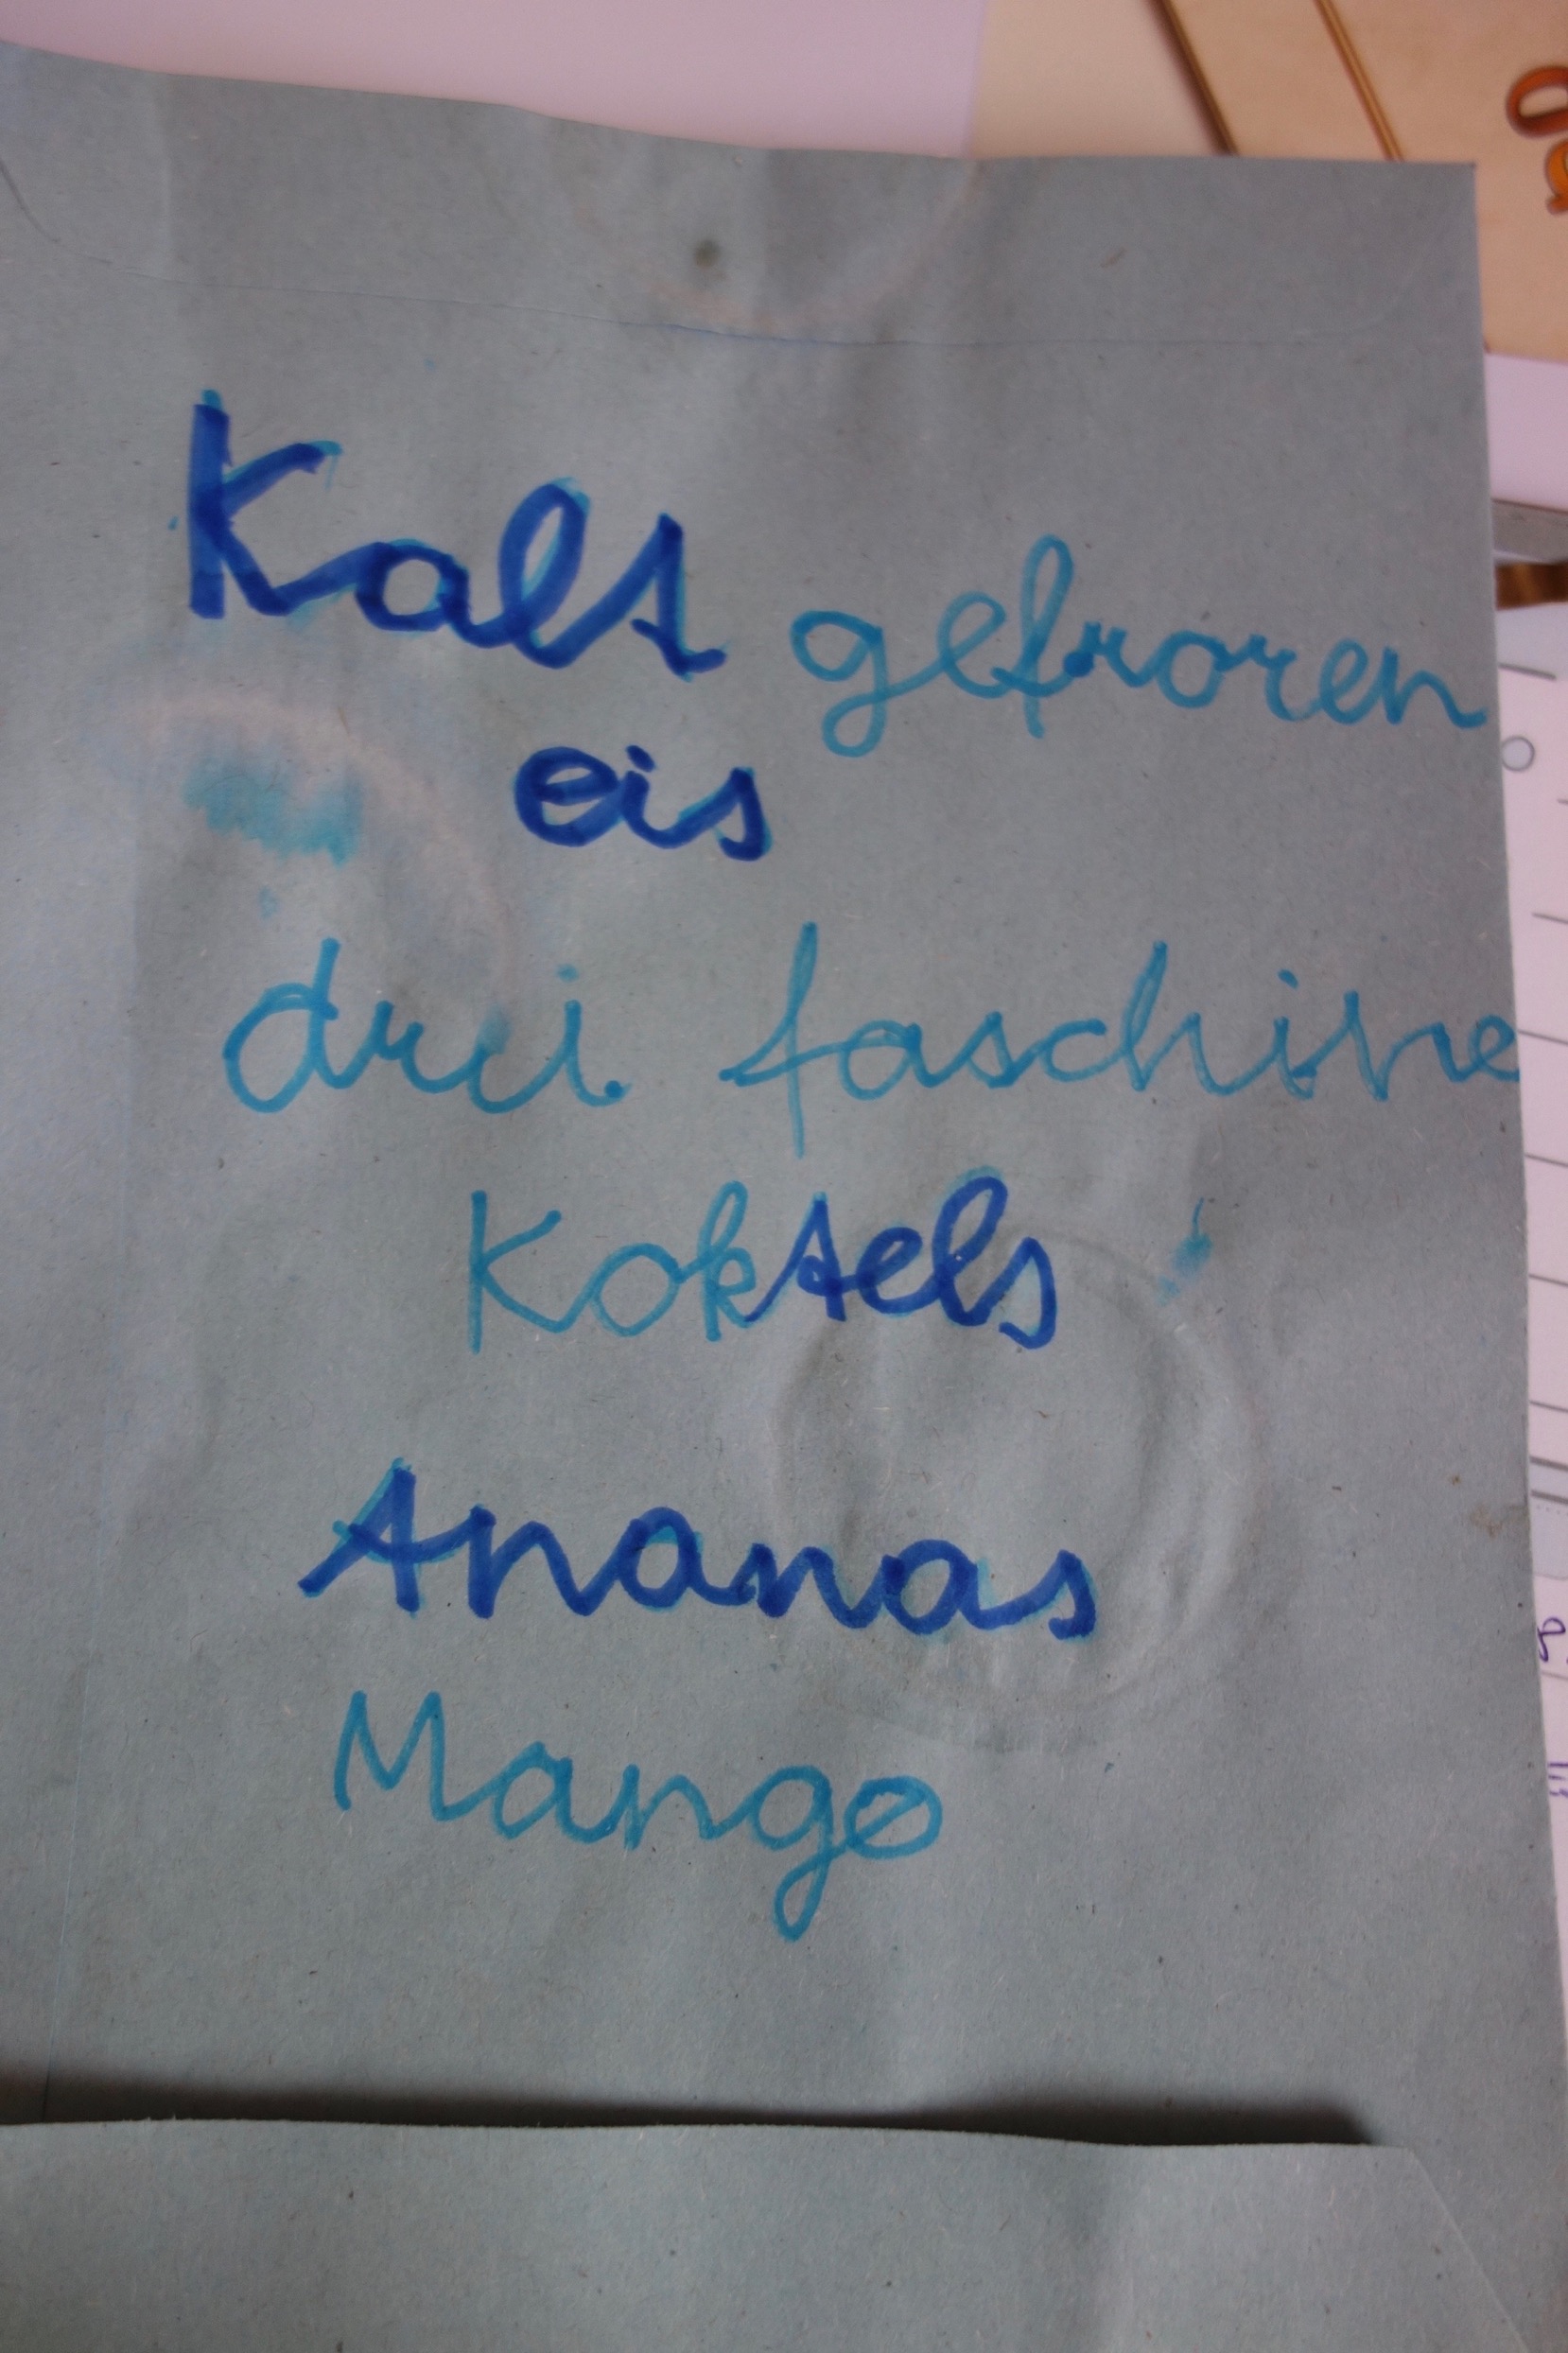 Kalt gefroren
eis
drei faschine
Koktels
Ananas
Mango